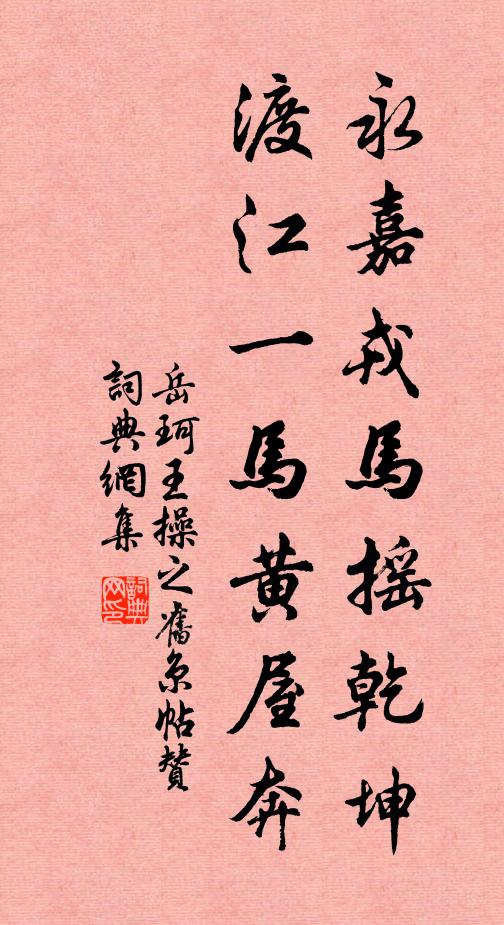 永嘉戎馬摇乾坤
渡江一馬黄屋奔
岳珂王操之舊京帖贊
詞典網集
詞典網印